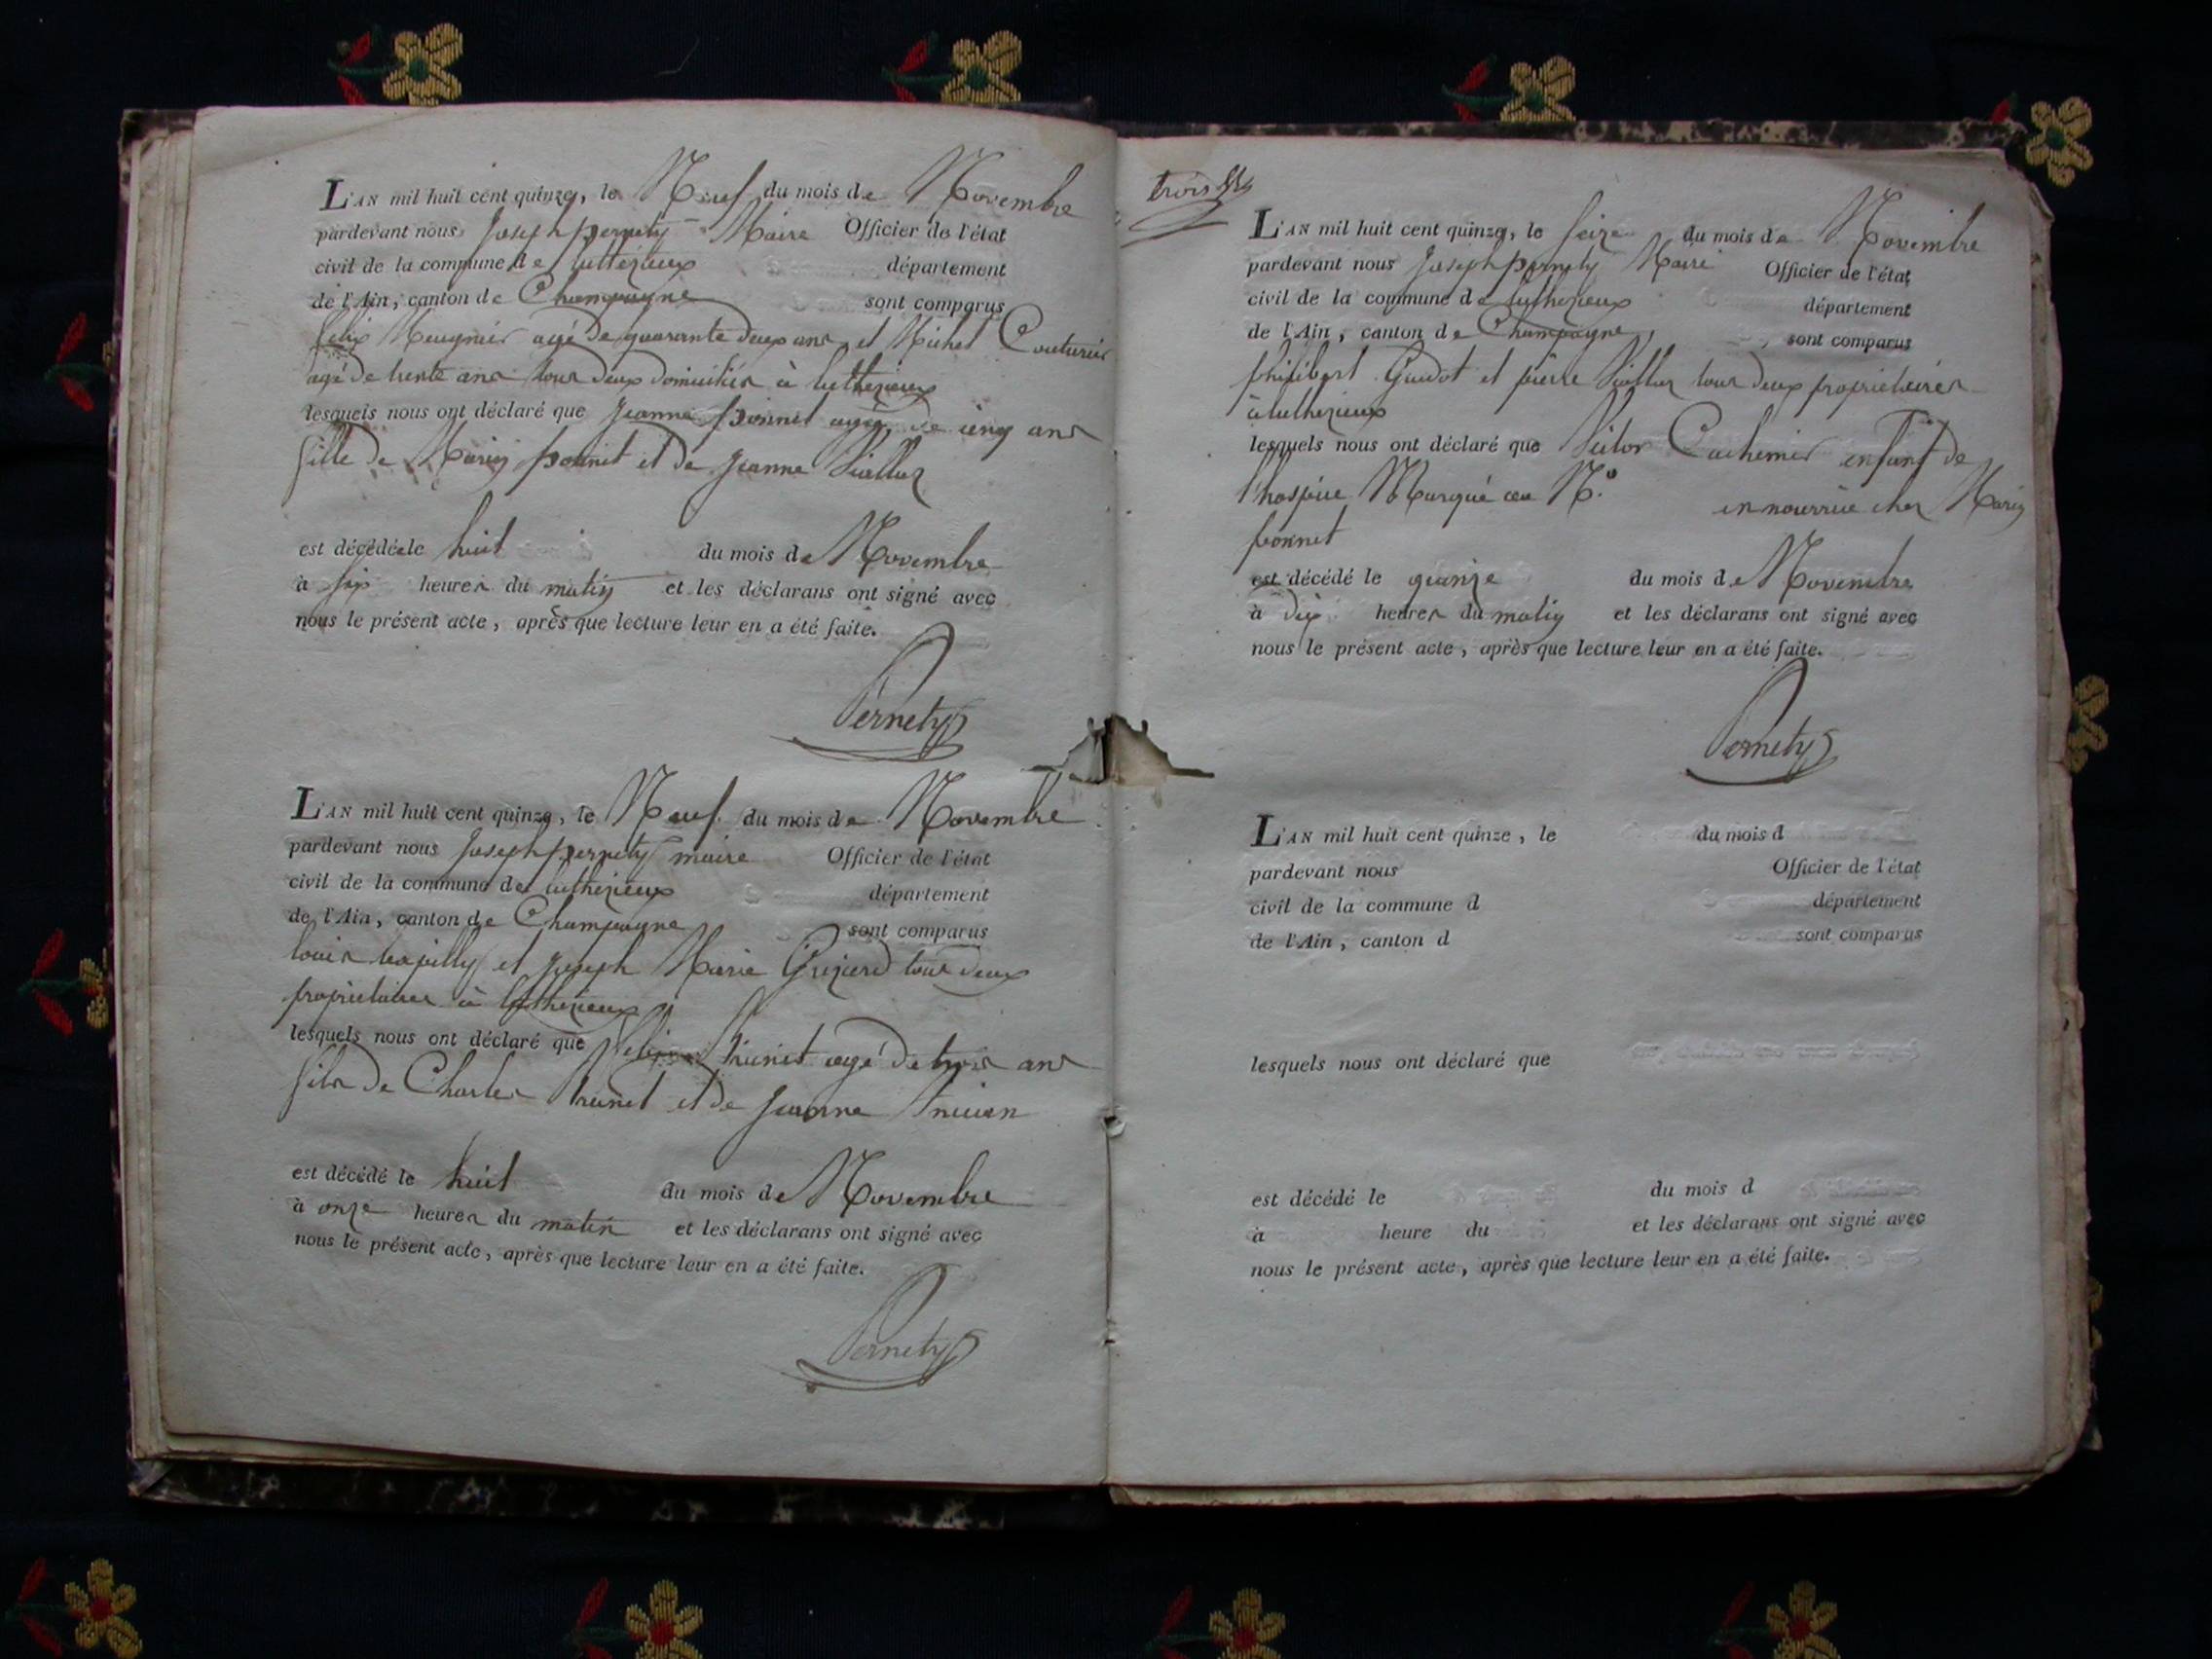 L'AN mil huit cent quinze, le Neuf du mois de Novembre
pardevant nous Joseph pernety Maire Officier de l'état
civil de la commune de luthezieux département
de l'Ain, canton de Champagne sont comparus
felix Meugnier agé de quarante deux ans et Michel Couturier
agé de trente ans tous deux domiciliés à luthezieux
lesquels nous ont déclaré que jeanne ponnet agée de cinq ans
fille de Marin ponnet et de jeanne Viallur
est décédée le huit du mois de Novembre
à six heures du matin et les déclarans ont signé avec
nous le présent acte, après que lecture leur en a été faite.
Pernety
L'AN mil huit cent quinze, le Neuf du mois de Novembre
pardevant nous Joseph pernety maire Officier de l'état
civil de la commune de luthezieux département
de l'Ain, canton de Champagne sont comparus
louis et joseph Marie tous deux
proprietaires à luthezieux
lesquels nous ont déclaré que agé de trois ans
fils de Charles et de jeanne
est décédé le huit du mois de Novembre
à onze heures du matin et les déclarans ont signé avec
nous le présent acte, après que lecture leur en a été faite.
Pernety
trois
L'AN mil huit cent quinze, le seize du mois de Novembre
pardevant nous Joseph pernety Maire Officier de l'état
civil de la commune de luthezieux département
de l'Ain, canton de Champagne, sont comparus
philibert Guidot et pierre Viallur tous deux proprietaires
à luthezieux
lesquels nous ont déclaré que Victor Cachemir enfant de
l'hospice Marqué au N.o en nourrice chez Marin
ponnet
est décédé le quinze du mois de Novembre
à dix heures du matin et les déclarans ont signé avec
nous le présent acte, après que lecture leur en a été faite.
Pernety
L'AN mil huit cent quinze, le du mois d
pardevant nous Officier de l'état
civil de la commune d département
de l'Ain, canton d sont comparus
lesquels nous ont déclaré que
est décédé le du mois d
à heure du et les déclarans ont signé avec
nous le présent acte, après que lecture leur en a été faite.